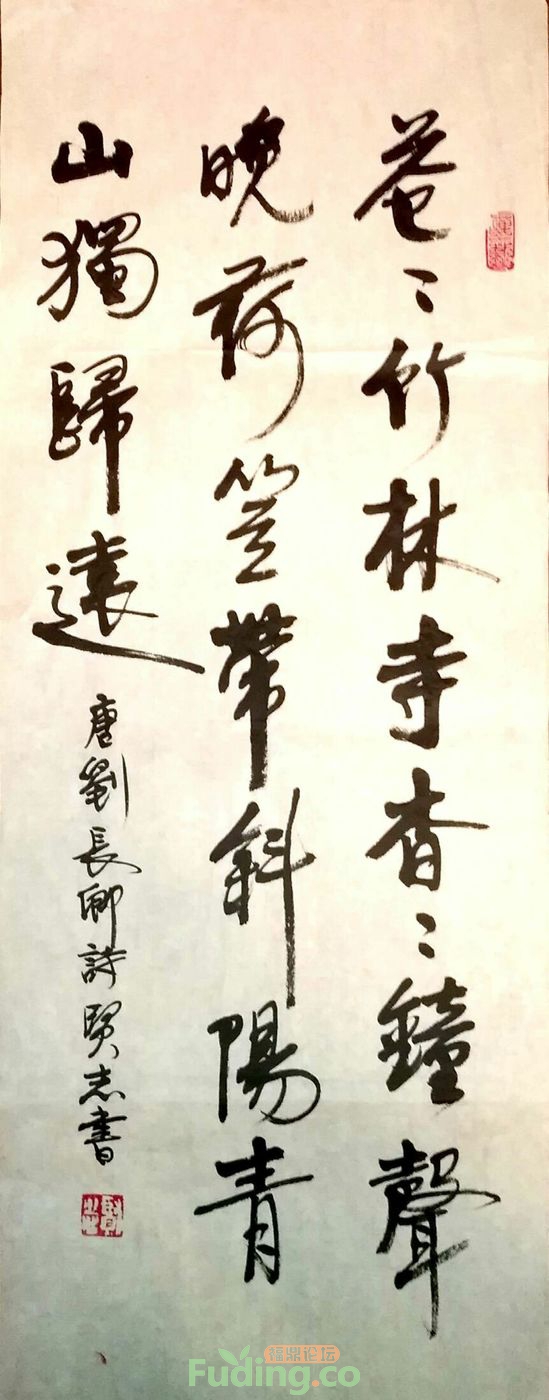 苍〻竹林寺杳〻鐘聲
晚荷笠帶斜陽青
山獨歸遠
唐劉長卿詩贤志書
福鼎论坛
Fuding.co